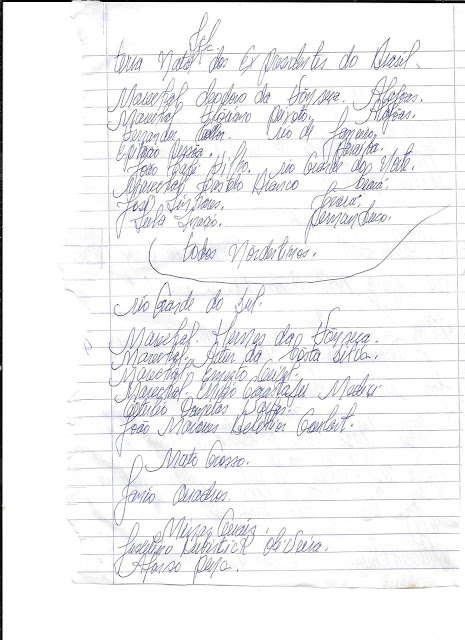 terra Natal dos Ex Presidentes do Brasil.
Marechal Deodoro da Fonseca. Alagoas.
Marechal Floriano Peixoto. Alagoas.
Fernandes Collor. rio de Janeiro
Epitácio Pessoa. Paraíba.
João Café Filho. rio Grande do Norte.
Marechal Castelo Branco Ceará.
José Linhares. Ceará.
Lula Inácio. Pernambuco.
todos Nordestinos.
rio Grande do Sul.
Marechal. Hermes da Fonseca.
Marechal. Artur da Costa Silva.
Marechal Ernesto Geisel.
Marechal Emílio Garrastazu Medici
Getulio Dornelas Vargas.
João Marques Belchior Goulart.
Mato Grosso.
Janio Quadros.
Minas Gerais.
Juscelino Kubitsick Oliveira.
Afonso Pena.